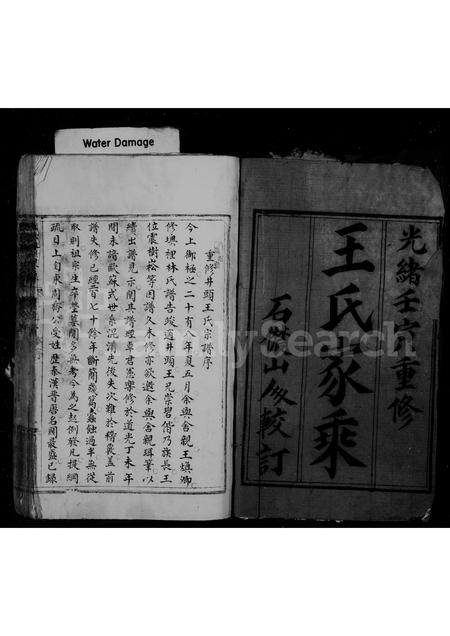 Water Damage
光緒壬寅重修
王氏家乘
石傑山人較訂
重修井頭王氏宗譜序
今上御極之二十有八年夏五月余與舍親王煥卿
修墺裡林氏譜告竣適井頭王兄崇碧偕乃族長王
位震樹崧等因譜久未修亦欲邀余與舍親珥筆以
續出譜見示閱其譜經卓君憲樂修於道光丁未年
間未諳歐蘇式世系混淆先後失次難於稽覈蓋前
譜失修已經二百七十餘年斷簡殘篇蠹蝕過半無從
取則祖宗生卒塋墓闕多無考今為之起例發凡提綱
疏目上自東周始公受姓歷秦漢晉唐名閥最盛已錄
FamilySearch